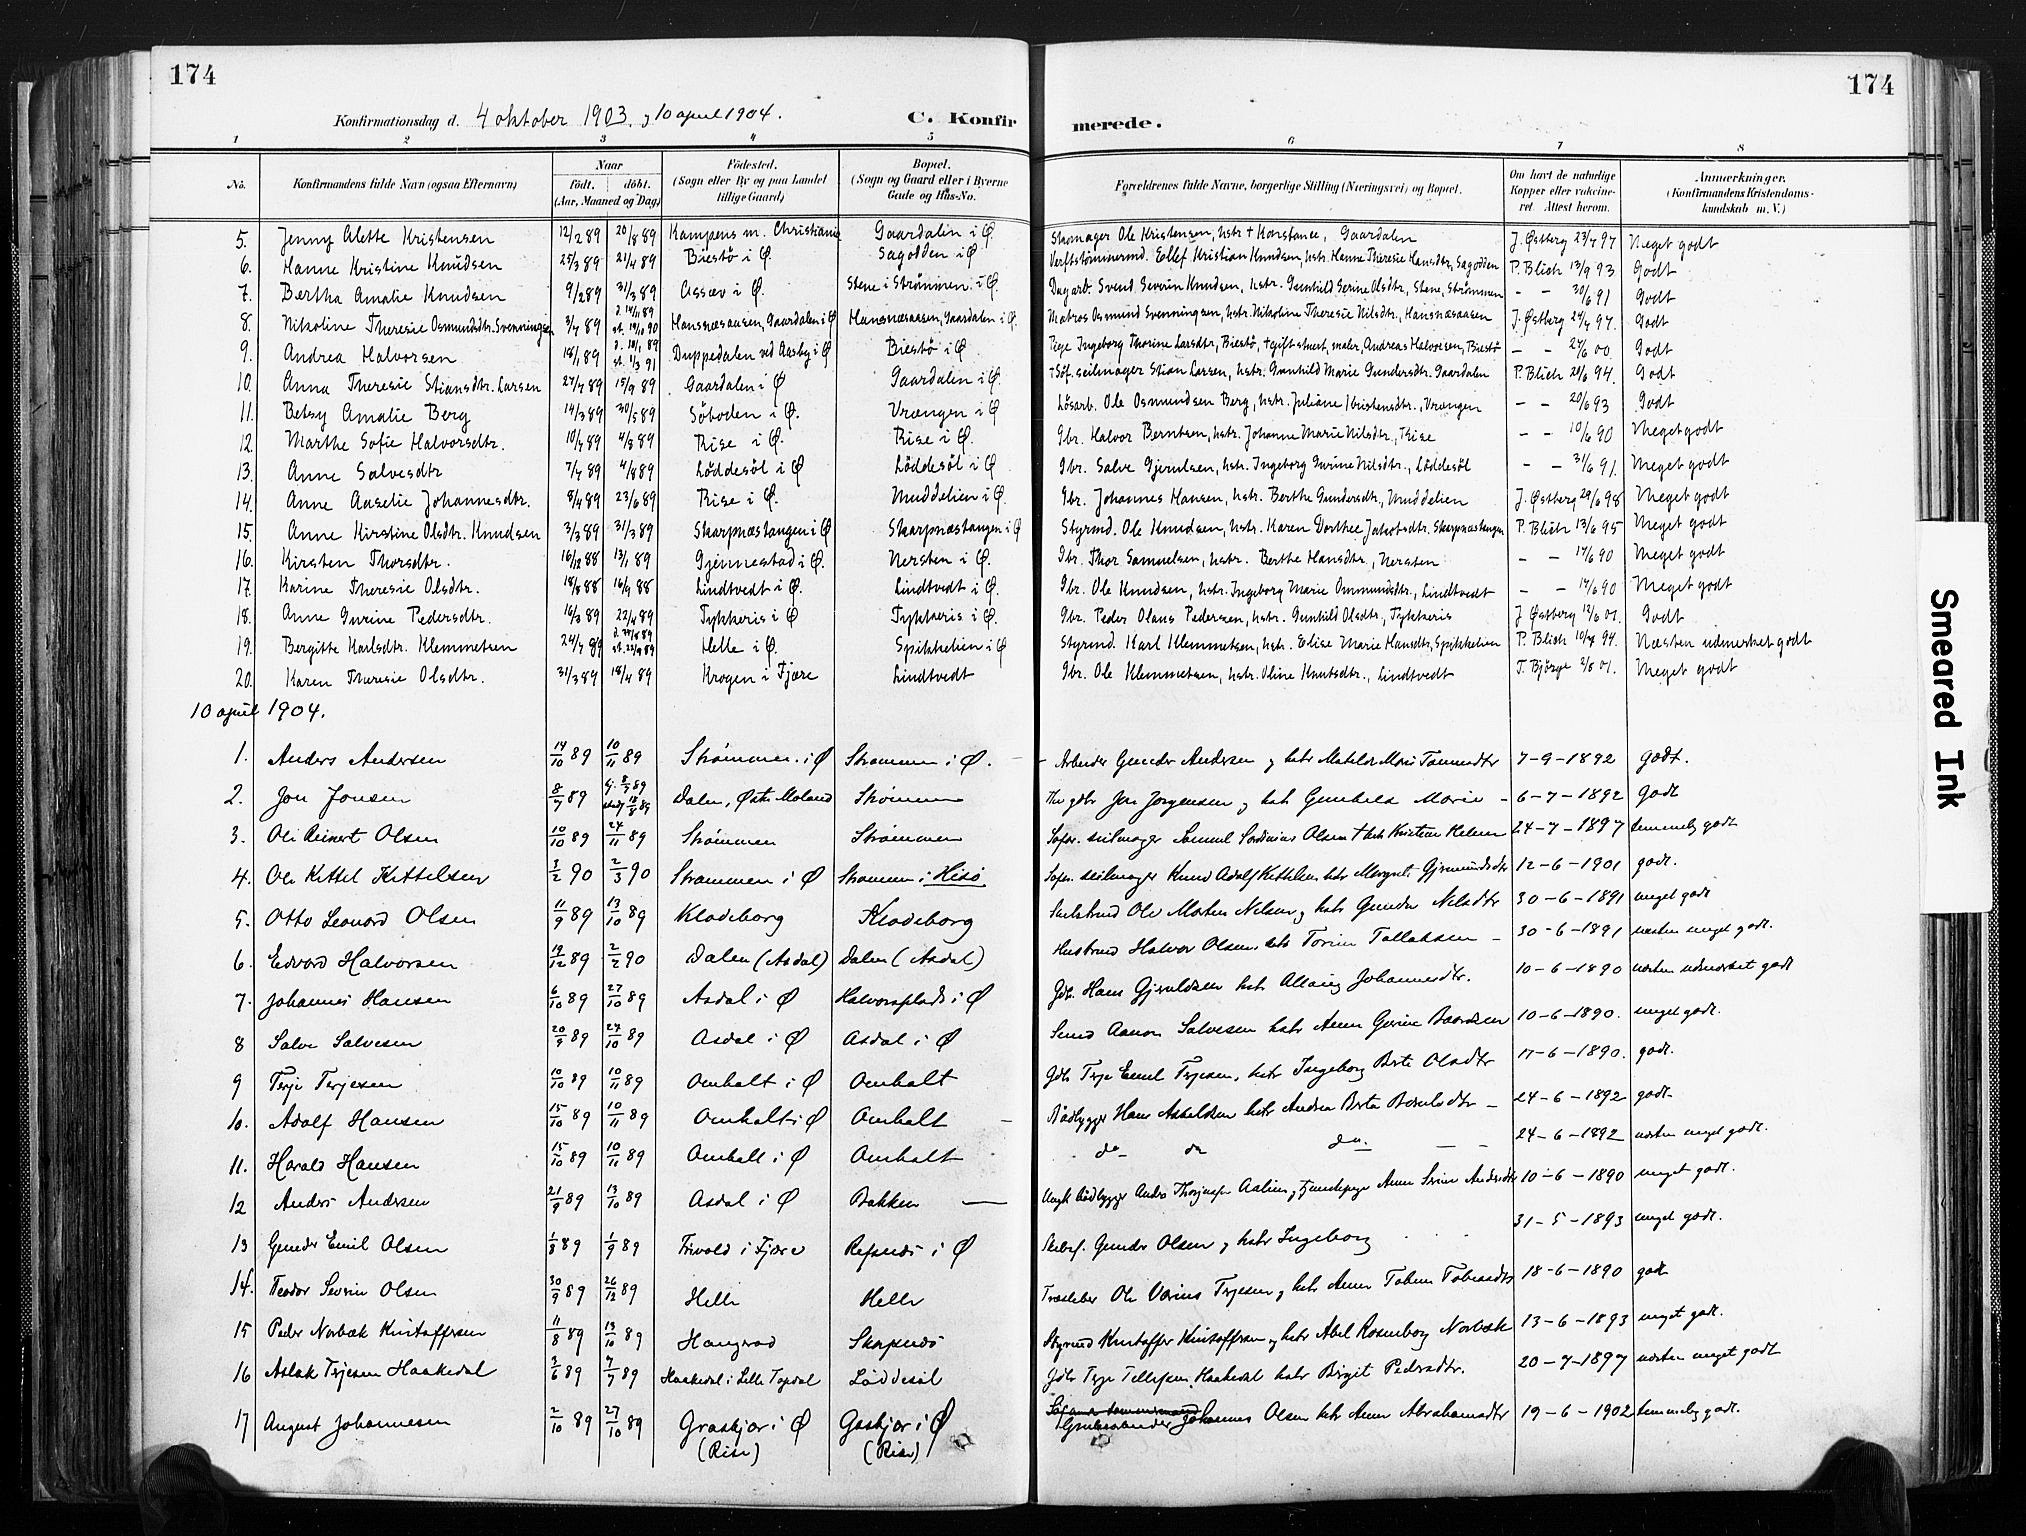 174
174
Konfirmationsdag d. 4 oktober 1903, 10 april 1904.
C. Konfirmerede.
1 2 3 4 5 6 7 8
No. Konfirmandens fulde Navn (ogsaa Efternavn) Naar født. døbt. (Aar, Maaned og Dag) Fødested. (Sogn eller By og paa Landet tillige Gaard) Bopæl. (Sogn og Gaard eller i Byerne Gade og Hus-No. Forældrenes fulde Navne, borgerlige Stilling (Næringsvei) og Bopæl. Om havt de naturlige Kopper eller vaccineret. Attest herom. Anmerkninger. (Konfirmandens Kristendomskundskab m. V.)
5. Jenny Alette Kristensen 12/2 89 20/8 89 Kampens m. Christiania Gaardalen i Ø. Skomager Ole Kristensen, hstr + Konstance, Gaardalen J. Østberg 23/7 97 Meget godt
6. Hanne Kristine Knudsen 25/3 89 21/4 89 Biestö i Ø. Sagodden i Ø. Verftstömmermd. Ellef Kristian Knudsen, hstr. Hanne Theresie Hansdtr, Sagodden P. Blich 13/9 93 Godt
7. Bertha Amalie Knudsen 9/2 89 31/3 89 Assæv i Ø. Stene i Strömmen i Ø. Dagarb. Svend Severin Knudsen, hstr. Gunhild Serine Olsdtr, Stene, Strömmen - - 30/6 91 Godt
8. Nikoline Theresie Osmundsdtr. Svenningsen 3/7 89 Hansnæsaasen, Gaardalen i Ø Hansnæsaasen, Gaardalen i Ø. Matros Osmund Svenningsen, hstr. Nikoline Theresie Nilsdtr., Hansnæsaasen J. Østberg 24/7 97. Godt
9. Andrea Halvorsen 18/1 89 Duppedalen ved Aasby i Ø Biestö i Ø. Pige Ingeborg Thorine Larsdtr, Biestö, + gift stuert, maler, Andreas Halvorsen, Biestö - - 24/6 00. Godt
10. Anna Theresie Stiansdtr. Larsen 27/7 89 15/9 89 Gaardalen i Ø Gaardalen i Ø. + Söf. seilmager Stian Larsen, hstr. Gunhild Marie Gundersdtr. Gaardalen P. Blich 20/6 94. Godt
11. Betsy Amalie Berg 14/3 89 30/5 89 Söboden i Ø. Vrængen i Ø Lösarb. Ole Osmundsen Berg, hstr. Juliane Kristensdtr., Vrængen - - 20/6 93 Godt
12. Marthe Sofie Halvorsdtr. 10/7 89 4/8 89 Rise i Ø. Rise i Ø. Gbr. Halvor Berntsen, hstr. Johanne Marie Nilsdtr., Rise - - 10/6 90 Meget godt
13. Anne Salvesdtr 7/7 89 4/8 89 Löddesöl i Ø Löddesöl i Ø. Gbr. Salve Gjerulsen, hstr. Ingeborg Gurine Nilsdtr, Löddesöl - - 31/6 91. Meget godt
14. Anne Aaselie Johannesdtr. 8/4 89 23/6 89 Rise i Ø. Muddelien i Ø. Gbr. Johannes Hansen, hstr. Berthe Gundersdtr., Muddelien J. Østberg 29/6 98 Meget godt
15. Anne Kirstine Olsdtr. Knudsen 3/3 89 31/3 89 Skarpnæstangen i Ø Skarpnæstangen i Ø Styrmd. Ole Knudsen, hstr. Karen Dorthee Jakobsdtr. Skarpnæstangen P. Blich 13/6 95 Meget godt
16. Kirsten Thorsdtr. 16/12 88 13/1 89 Gjennestad i Ø. Nersten i Ø. Gbr. Thor Samuelsen, hstr. Berthe Hansdtr, Nersten - - 17/6 90 Meget godt
17. Karine Theresie Olsdtr. 18/8 88 16/9 88 Lindtvedt i Ø. Lindtvedt i Ø. Gbr. Ole Knudsen, hstr. Ingeborg Marie Ommundsdtr., Lindtvedt - - 14/6 90 Meget godt
18. Anne Gurine Pedersdtr. 16/3 89 22/4 89 Tykkeris i Ø Tykkeris i Ø. Gbr. Peder Olaus Pedersen, hstr. Gunhild Olsdtr, Tykkeris J Østberg 12/6 01. Godt
19. Bergitte Karlsdtr. Klemmetsen 24/7 89 Helle i Ø. Spikkelien i Ø Styrmd. Karl Klemmetsen, hstr. Elise Marie Hansdtr, Spikkelien P. Blich 10/7 94. Næsten udmerket godt
20. Karen Theresie Olsdtr. 31/3 89 18/4 89 Krogen i Fjære Lindtvedt Gbr. Ole Klemmetsen, hstr. Oline Knutsdtr., Lindtvedt T. Bjørge 2/8 01. Meget godt
10 april 1904.
1. Anders Andersen 14/10 89 10/11 89 Strömmen i Ø Strömmen i Ø. Arbeider Gunder Andersen og hstr Matilde Marie 7-9-1892 godt.
2. Jon Jonsen 8/7 89 Dalen, Östr. Moland Strömmen Jon Jörgensen og hstr Gunhild Marie - 6-7-1892 godt
3. Ole Reinert Olsen 10/10 89 24/11 89 Strömmen Strömmen Sofar. seilmager Samuel Olsen + hstr Kristine Helene 24-7-1897 temmelig godt
4. Ole Kittel Kittelsen 3/2 90 2/3 90 Strömmen i Ø Strömmen i Hisö Sofar. seilmager Knud Adolf Kittelsen hstr Margrete Gjermundsdtr 12-6-1901 godt.
5. Otto Leonard Olsen 11/9 89 13/10 89 Klodeborg Klodeborg Ole Morten Nilsen og hstr Gunda Nilsdtr 30-6-1891 meget godt
6. Edvard Halvorsen 19/12 89 2/2 90 Dalen (Asdal) Dalen (Asdal) Husmand Halvor Olsen hstr Torine Tallaksen - 30-6-1891 næsten meget godt.
7. Johannes Hansen 6/10 89 27/10 89 Asdal i Ø Halvorsplads i Ø Gbr. Hans Gjeruldsen hstr Johannesdtr. 10-6-1890 næsten udmærket godt
8 Salve Salvesen 20/9 89 24/10 89 Asdal i Ø Asdal i Ø Aanon Salvesen hstr Anne Gurine 10-6-1890. meget godt.
9 Terje Terjesen 10/10 89 10/11 89 Omholt i Ø Omholt Gbr Terje Emil Terjesen, hstr Ingeborg Berte Olsdtr 17-6-1890. godt.
10. Adolf Hansen 15/10 89 10/11 89 Omholt i Ø Omholt - Baadbygger Hans Askildsen hstr Andrea Berta - 24-6-1892 godt
11. Harald Hansen 15/10 89 10/11 89 Omholt i Ø Omholt do do do. - - 24-6-1892 næsten meget godt.
12 Anders Andersen 21/9 89 13/10 89 Asdal i Ø Bakken - Ungk. baadbygger Anders og tjenestepige Anne Serine Andersdtr 10-6-1890 meget godt.
13 Gunder Emil Olsen 1/8 89 1/9 89 Trivold i Fjære Refsnæs i Ø Skibsf. Gunder Olsen og hstr Ingeborg 31-5-1893 meget godt.
14. Teodor Severin Olsen 30/9 89 26/12 89 Helle Helle Ole Terjesen og hstr Anne Tobiasdtr 18-6-1890 godt
15 Peder Norbæk Kristoffersen 11/8 89 13/10 89 Skarpnæs Styrmd Kristoffer Kristoffersen og hstr Abel Rosenborg Norbæk 13-6-1893 meget godt.
16 Aslak Terjesen Haakedal 3/6 89 7/7 89 Haakedal i Lille Topdal Löddesöl Gbr Terje Tellefsen Haakedal hstr Birgit Pedersdtr. 20-7-1897 næsten meget godt
17 August Johannessen 2/10 89 27/10 89 Graskjær i Ø (Rise) Gaskjær i Ø (Rise) Grubearbeider Johannes Olsen hstr Anne Abrahamsdtr 19-6-1902 temmelig godt.
Smeared Ink